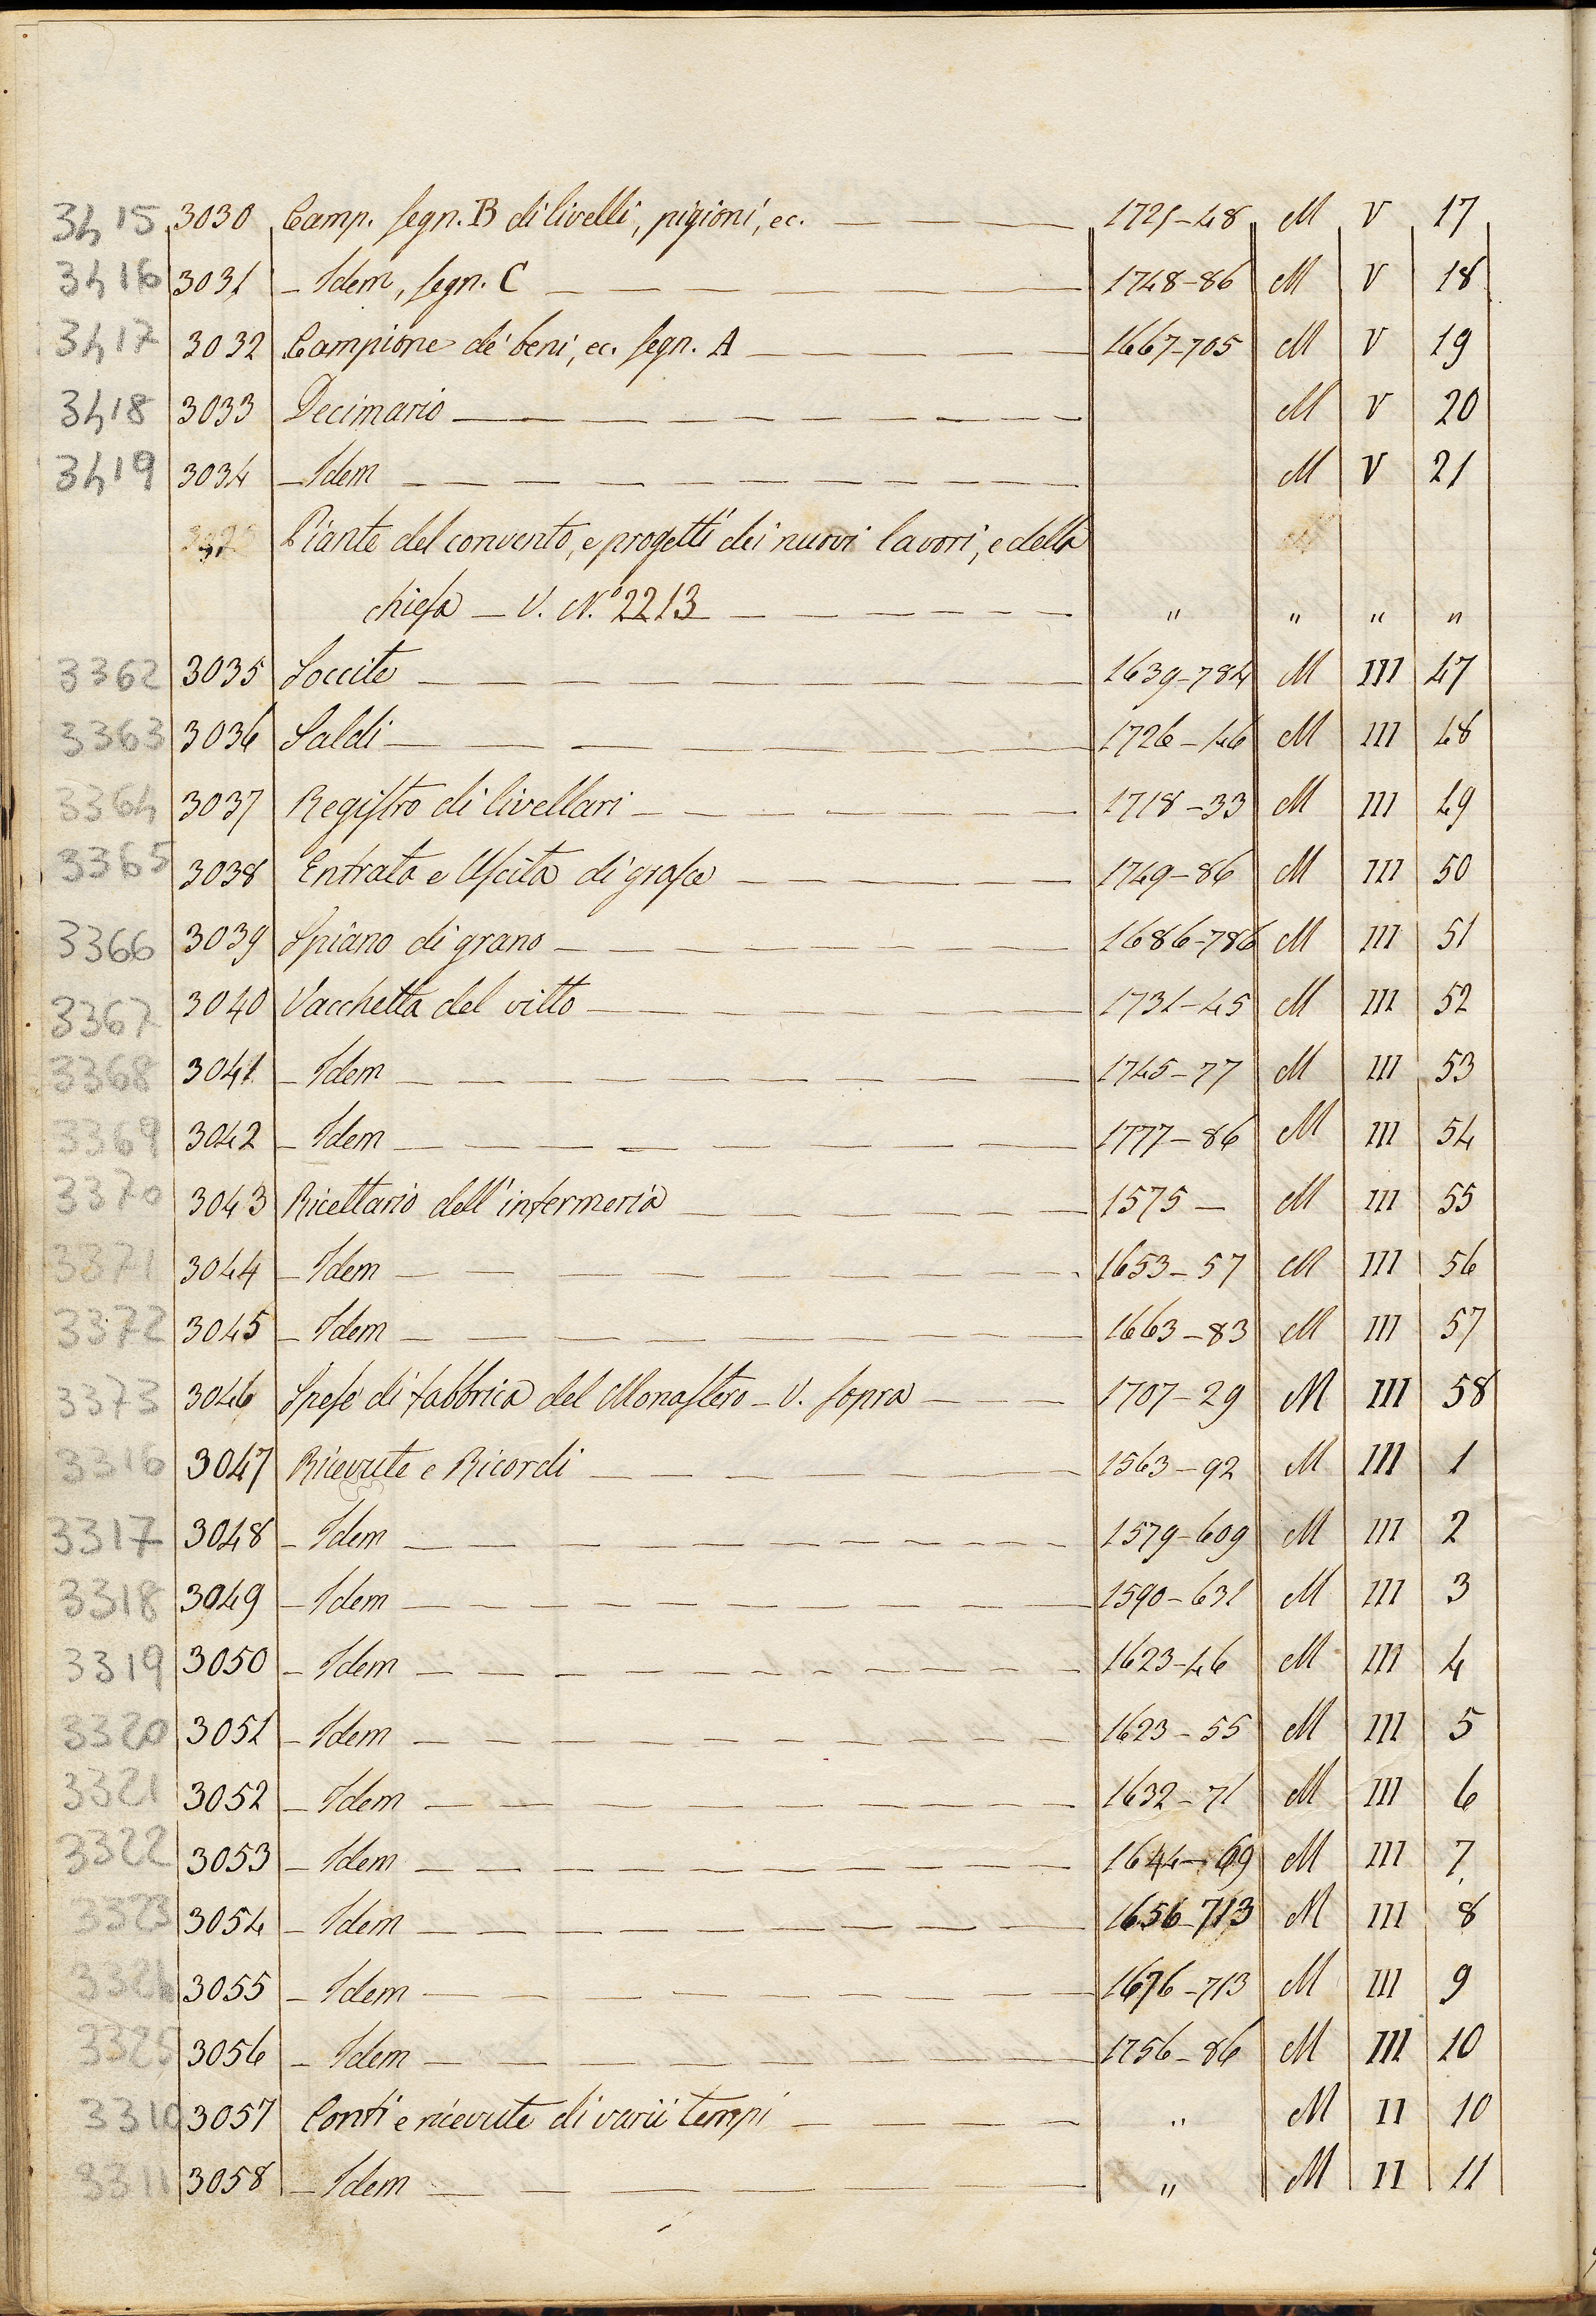 3415 3030 Camp. segn. B di livelli, pigioni, ec. 1721-48 M V 17
3416 3031 - Idem, segn. C 1748-86 M V 18
3417 3032 Campione de' beni, ec. segn. A 1667-705 M V 19
3418 3033 Decimario M V 20
3419 3034 - Idem M V 21
Piante del convento, e progetti dei nuovi lavori, e della
chiesa - V. N.° 2213 " " " "
3362 3035 Soccite 1639-784 M III 47
3363 3036 Saldi 1726-46 M III 48
3364 3037 Registro di livellari 1718-33 M III 49
3365 3038 Entrata e Uscita di grasce 1749-86 M III 50
3366 3039 Spiano di grano 1686-786 M III 51
3367 3040 Vacchetta del vitto 1731-45 M III 52
3368 3041 - Idem 1745-77 M III 53
3369 3042 - Idem 1777-86 M III 54
3370 3043 Ricettario dell'infermeria 1575 - M III 55
3371 3044 - Idem 1653-57 M III 56
3372 3045 - Idem 1663-83 M III 57
3373 3046 Spese di fabbrica del Monastero - V. sopra 1707-29 M III 58
3316 3047 Ricevute e Ricordi 1563-92 M III 1
3317 3048 - Idem 1579-609 M III 2
3318 3049 - Idem 1590-631 M III 3
3319 3050 - Idem 1623-46 M III 4
3320 3051 - Idem 1623-55 M III 5
3321 3052 - Idem 1632-71 M III 6
3322 3053 - Idem 1644-69 M III 7
3323 3054 - Idem 1656-713 M III 8
3324 3055 - Idem 1676-713 M III 9
3325 3056 - Idem 1756-86 M III 10
3310 3057 Conti e ricevute di varii tempi " M II 10
3311 3058 - Idem " M II 11